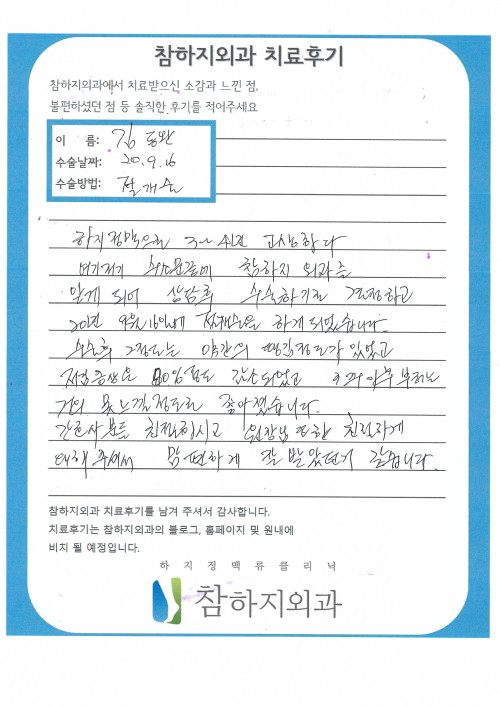 참하지외과 치료후기
참하지외과에서 치료받으신 소감과 느낀 점,
불편하셨던 점 등 솔직한 후기를 적어주세요
이 름: 김동완
수술날짜: 20.9.16
수술방법: 절개술
하지정맥으로 3~4년간 고생하다
여기저기 수소문끝에 참하지 외과를
알게 되어 상담후 수술하기로 결정하고
20년 9월 16일에 절개술을 하게 되었습니다.
수술후 2정도는 약간의 땡김정도가 있었고
저림증상은 80%정도 감소되었고 부터는
거의 못느낄정도로 좋아졌습니다.
간호사분들 친절하시고 원장님 또한 친절하게
대해 주셔서 맘 편하게 잘 받았던거 같습니다.
참하지외과 치료후기를 남겨 주셔서 감사합니다.
치료후기는 참하지외과의 블로그, 홈페이지 및 원내에
비치 될 예정입니다.
하지정맥류클리닉
참하지외과